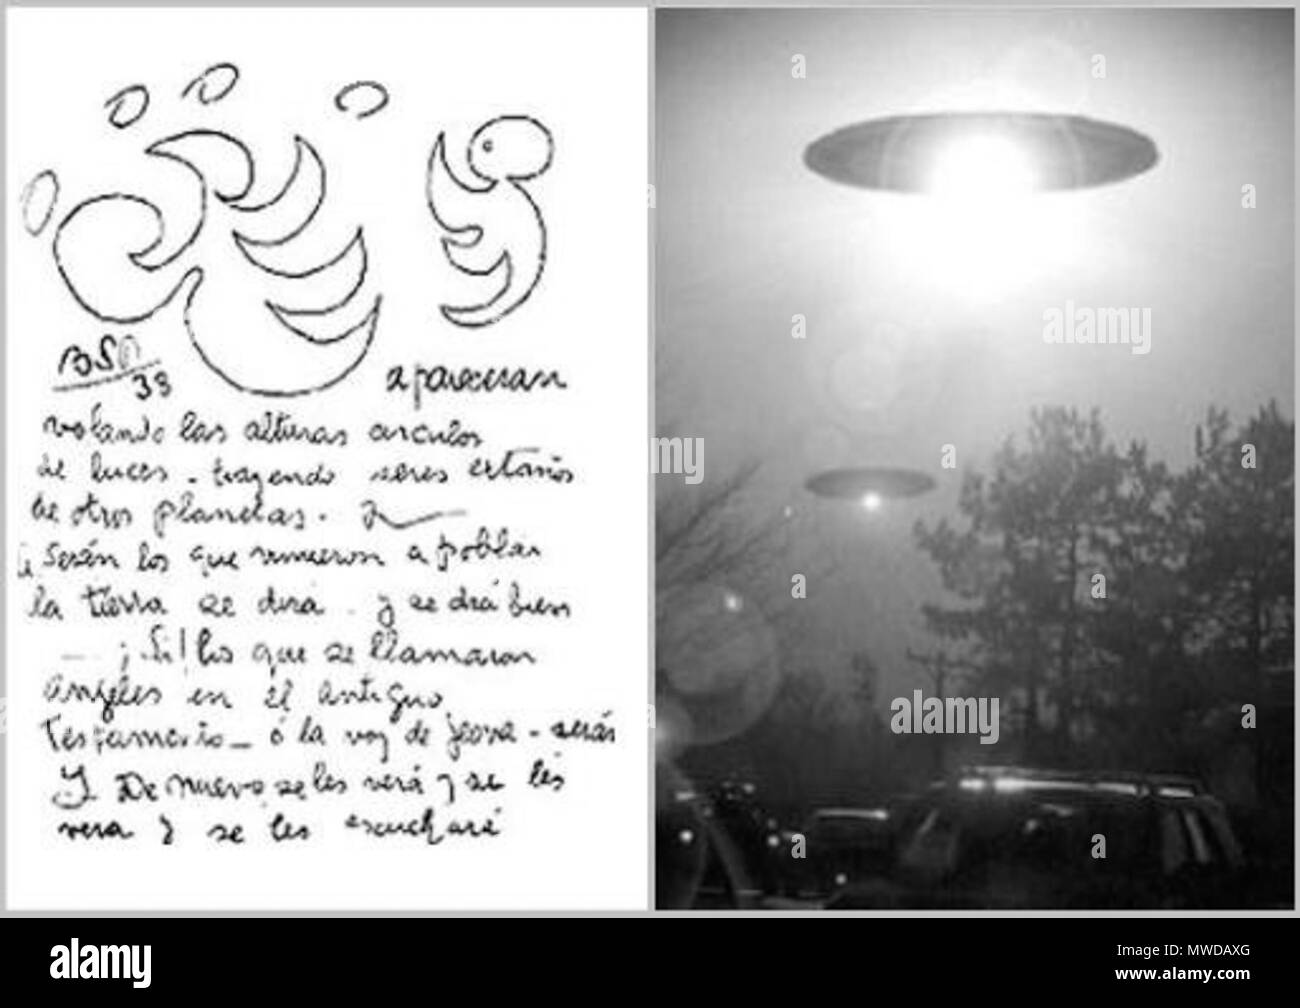 BSP
38
apareceran
volando las alturas circulos
de luces - trayendo seres extraños
de otros planetas.
serán los que vinieron a poblar
la tierra se dira - y se dirá bien
- ¡Si! los que se llamaron
angeles en el antiguo
testamento - ó la voz de jeova - serán
Y De nuevo se les verá y se les
vera y se les escuchará
alamy
alamy
alamy
Image ID: MWDAXG
www.alamy.com